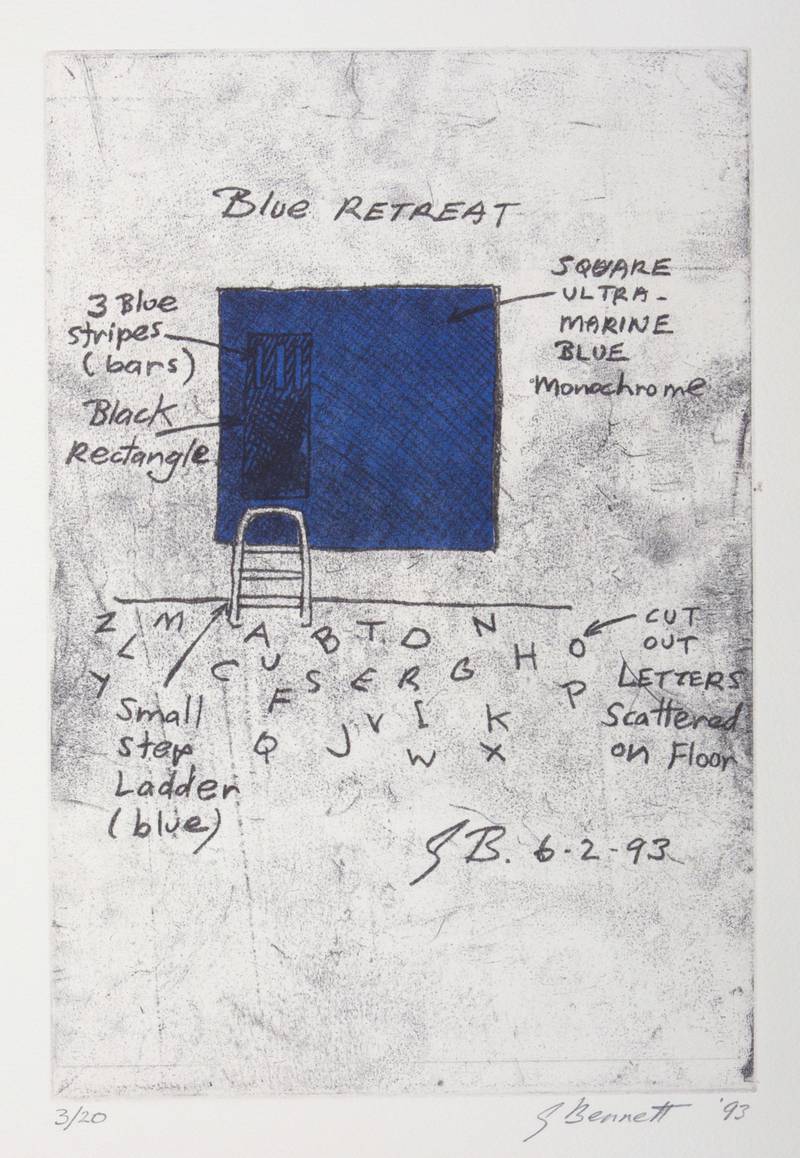 Blue RETREAT
3 Blue
stripes
(bars)
Black
Rectangle
SQUARE
ULTRA-
MARINE
BLUE
Monochrome
Z M A B T D N O
L C U S E R G H
Y F J V I K P
Q W X
CUT
OUT
LETTERS
Scattered
on Floor
Small
Step
Ladder
(blue)
GB. 6-2-93
3/20
G Bennett '93